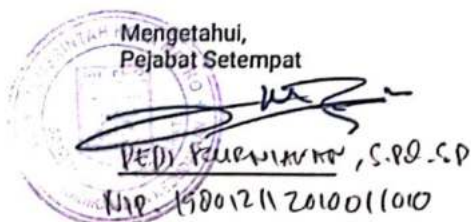 Mengetahui,
Pejabat Setempat
DEDI KURNIAWAN, S.Pd.SD
NIP 198012112010011010